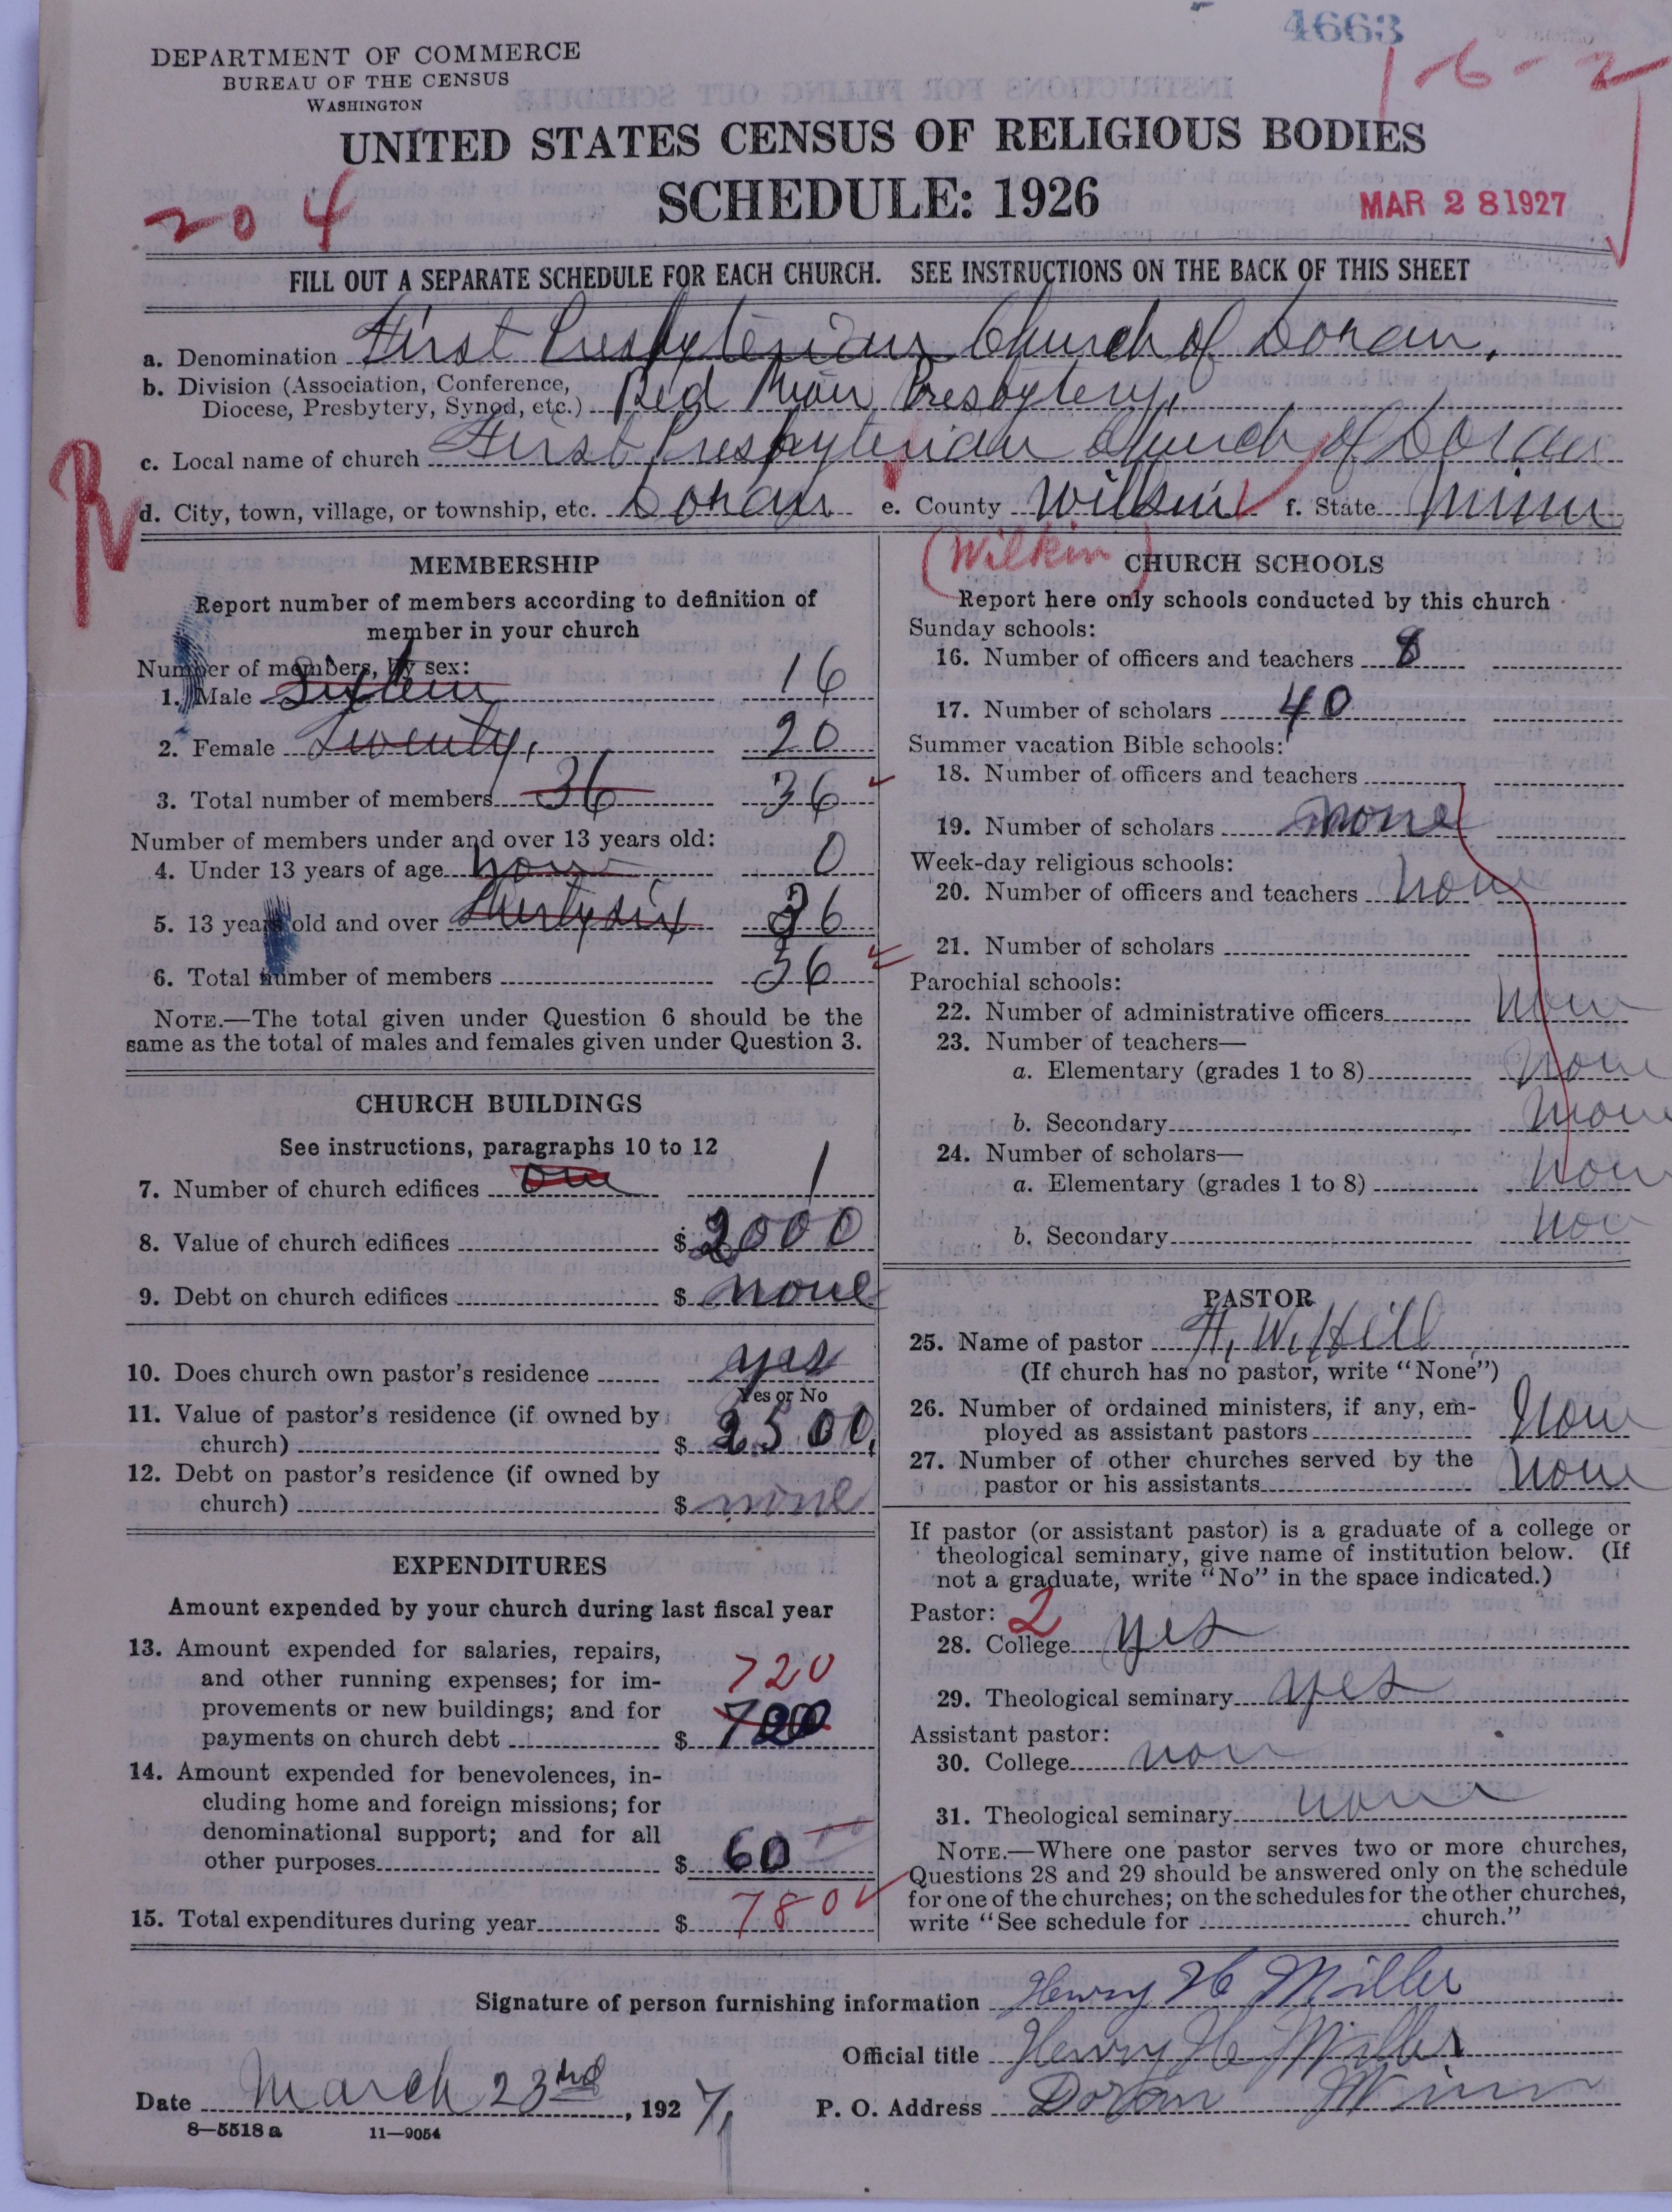 4663
1-6-2
DEPARTMENT OF COMMERCE
BUREAU OF THE CENSUS
WASHINGTON
UNITED STATES CENSUS OF RELIGIOUS BODIES
SCHEDULE: 1926
204
MAR 28 1927
FILL OUT A SEPARATE SCHEDULE FOR EACH CHURCH. SEE INSTRUCTIONS ON THE BACK OF THIS SHEET
a. Denomination First Presbyterian Church of Doran.
b. Division (Association, Conference,
Diocese, Presbytery, Synod, etc.) Red River Presbytery,
c. Local name of church First Presbyterian Church of Doran
R
d. City, town, village, or township, etc. Doran e. County Wilkin f. State Minn
(Wilkin)
MEMBERSHIP
Report number of members according to definition of
member in your church
Number of members, by sex:
1. Male Sixteen 16
2. Female Twenty, 20
3. Total number of members 36 36
Number of members under and over 13 years old:
4. Under 13 years of age none 0
5. 13 years old and over Thirty six 36
6. Total number of members 36
NOTE.—The total given under Question 6 should be the
same as the total of males and females given under Question 3.
CHURCH BUILDINGS
See instructions, paragraphs 10 to 12
7. Number of church edifices one 1
8. Value of church edifices $ 2000
9. Debt on church edifices $ none
10. Does church own pastor's residence yes
Yes or No
11. Value of pastor's residence (if owned by
church) $ 2500,
12. Debt on pastor's residence (if owned by
church) $ none
EXPENDITURES
Amount expended by your church during last fiscal year
13. Amount expended for salaries, repairs,
and other running expenses; for im-
provements or new buildings; and for
payments on church debt $ 720
720
14. Amount expended for benevolences, in-
cluding home and foreign missions; for
denominational support; and for all
other purposes $ 60
15. Total expenditures during year $ 780
CHURCH SCHOOLS
Report here only schools conducted by this church
Sunday schools:
16. Number of officers and teachers 8
17. Number of scholars 40
Summer vacation Bible schools:
18. Number of officers and teachers
19. Number of scholars none
Week-day religious schools:
20. Number of officers and teachers none
21. Number of scholars
Parochial schools:
22. Number of administrative officers none
23. Number of teachers—
a. Elementary (grades 1 to 8) none
b. Secondary none
24. Number of scholars—
a. Elementary (grades 1 to 8) none
b. Secondary non
PASTOR
25. Name of pastor H. W. Hill
(If church has no pastor, write "None")
26. Number of ordained ministers, if any, em-
ployed as assistant pastors none
27. Number of other churches served by the
pastor or his assistants none
If pastor (or assistant pastor) is a graduate of a college or
theological seminary, give name of institution below. (If
not a graduate, write "No" in the space indicated.)
Pastor: 2
28. College yes
29. Theological seminary yes
Assistant pastor:
30. College non
31. Theological seminary none
NOTE.—Where one pastor serves two or more churches,
Questions 28 and 29 should be answered only on the schedule
for one of the churches; on the schedules for the other churches,
write "See schedule for church."
Signature of person furnishing information Henry H Miller
Official title Henry H Miller
Date March 23rd, 1927, P. O. Address Doran Minn
8—5518a 11—9054